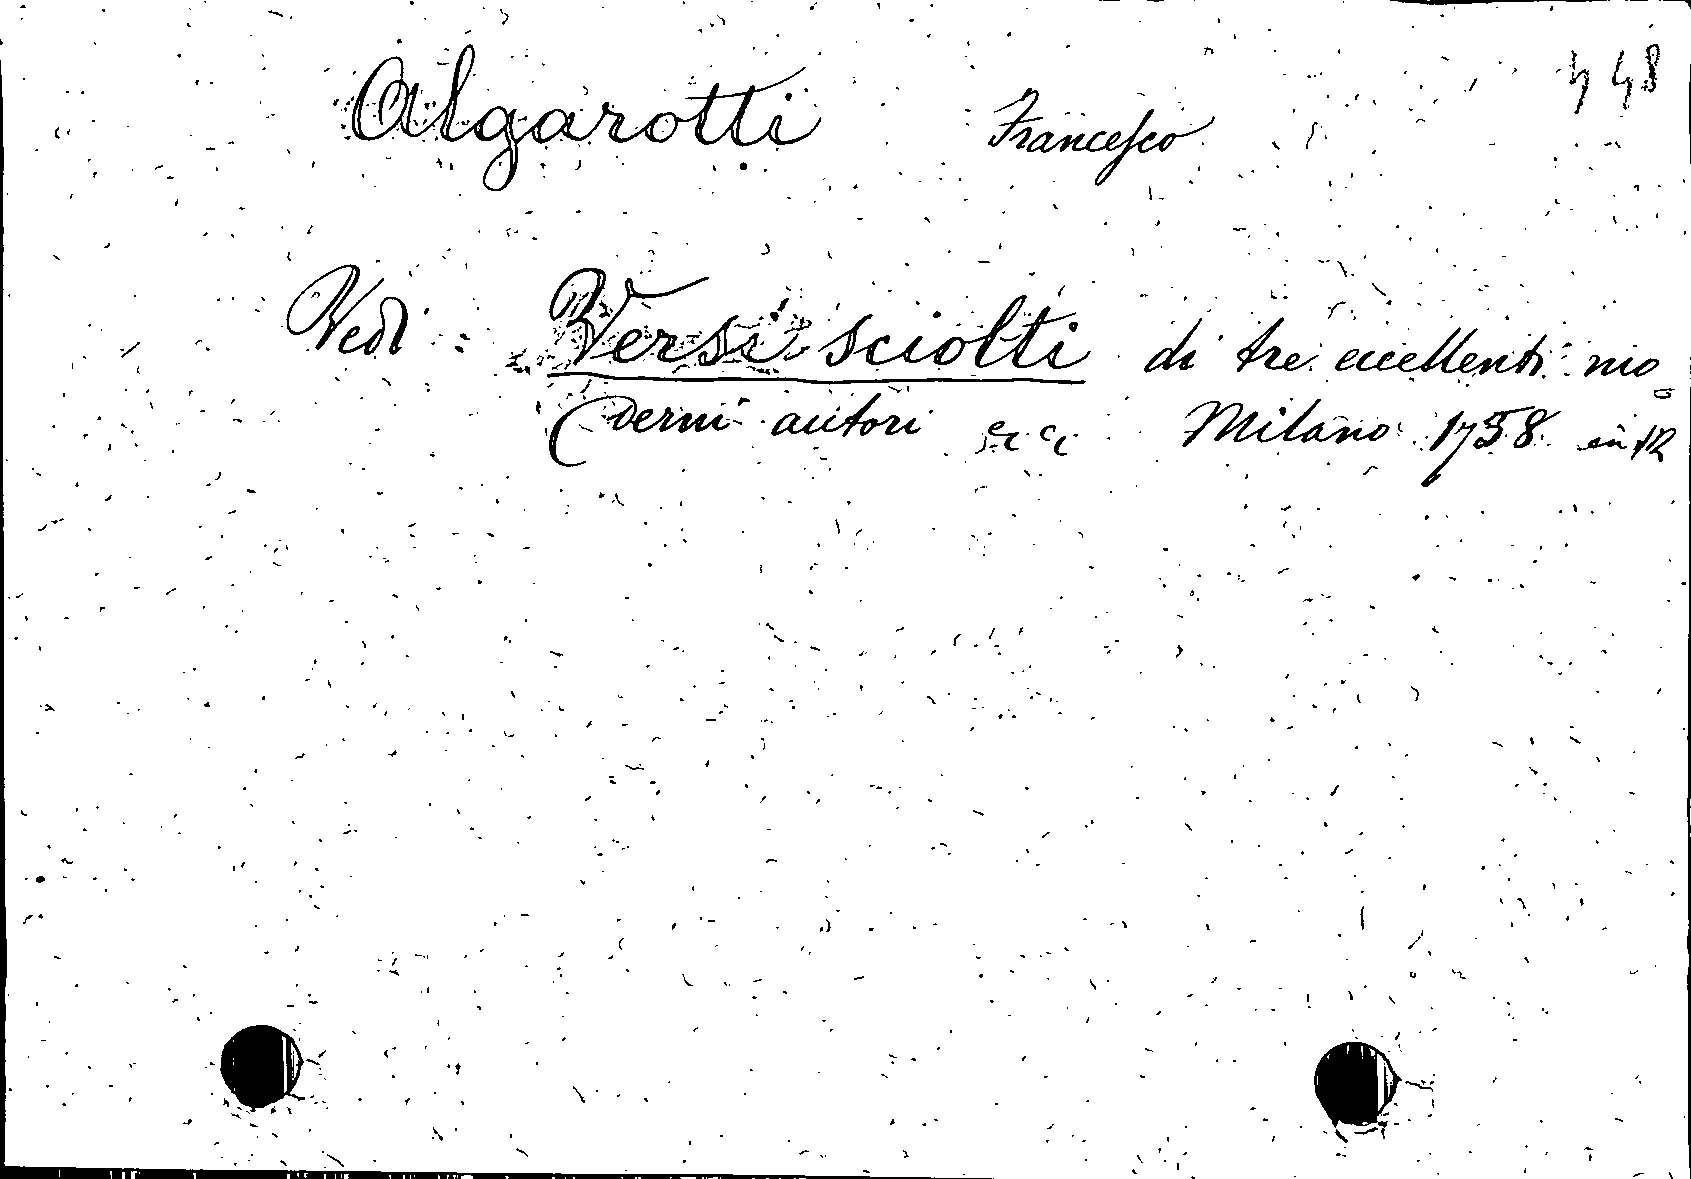 448
Algarotti Francesco
Vedi: Versi sciolti di tre eccellenti mo
derni autori ecc Milano 1758 in 12